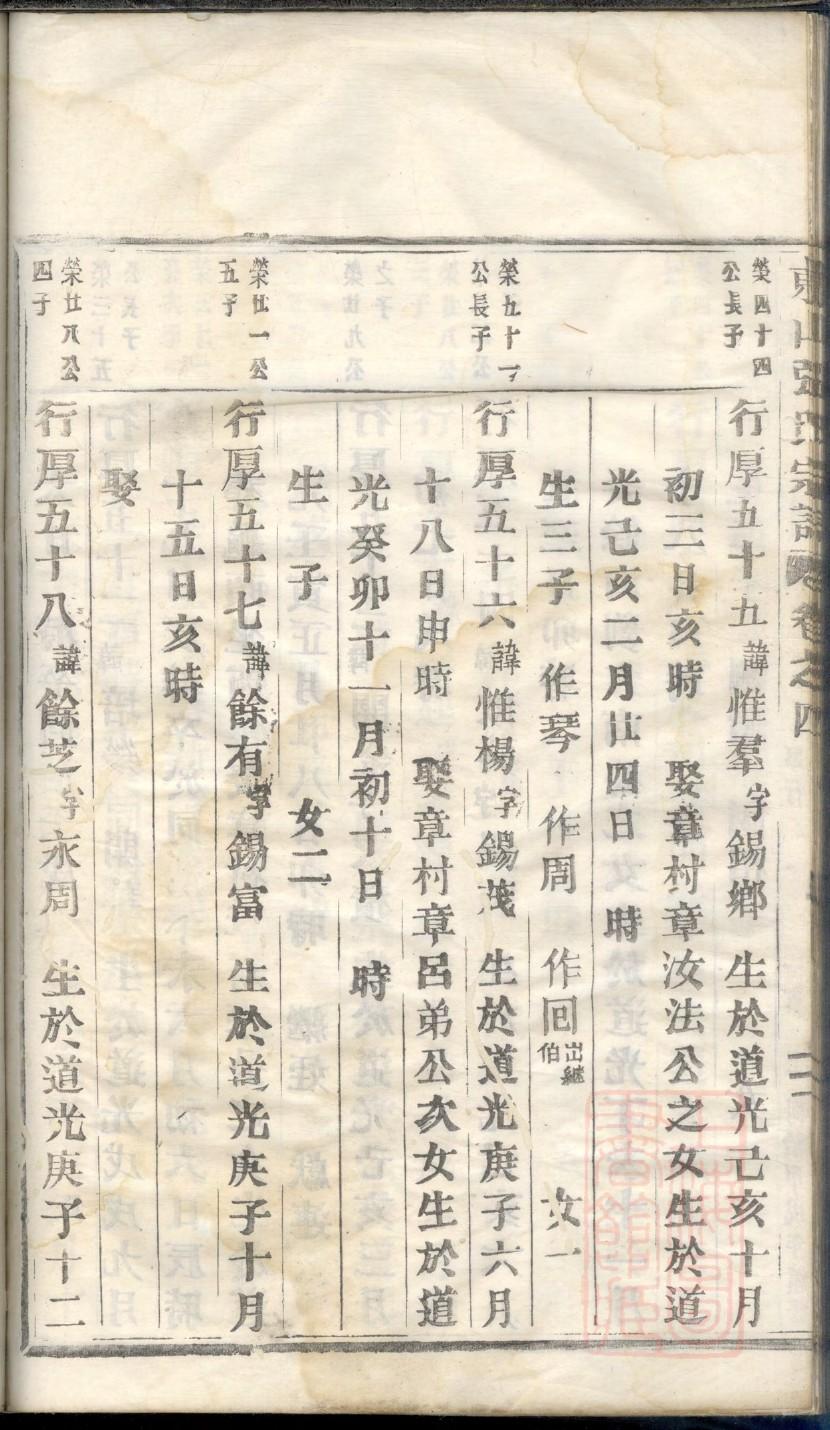 榮四十四
公長子
行厚五十五諱惟羣字錫鄉 生於道光己亥十月
初三日亥時 娶章村章汝法公之女生於道
光己亥二月廿四日 時
生三子 作琴 作周 作回出繼伯 女一
榮五十一
公長子
行厚五十六諱惟楊字錫茂 生於道光庚子六月
十八日申時 娶章村章呂弟公次女生於道
光癸卯十一月初十日 時
生 子 女二
榮廿一公
五子
行厚五十七諱餘有字錫富 生於道光庚子十月
十五日亥時
娶
榮廿八公
四子
行厚五十八諱餘芝字永周 生於道光庚子十二